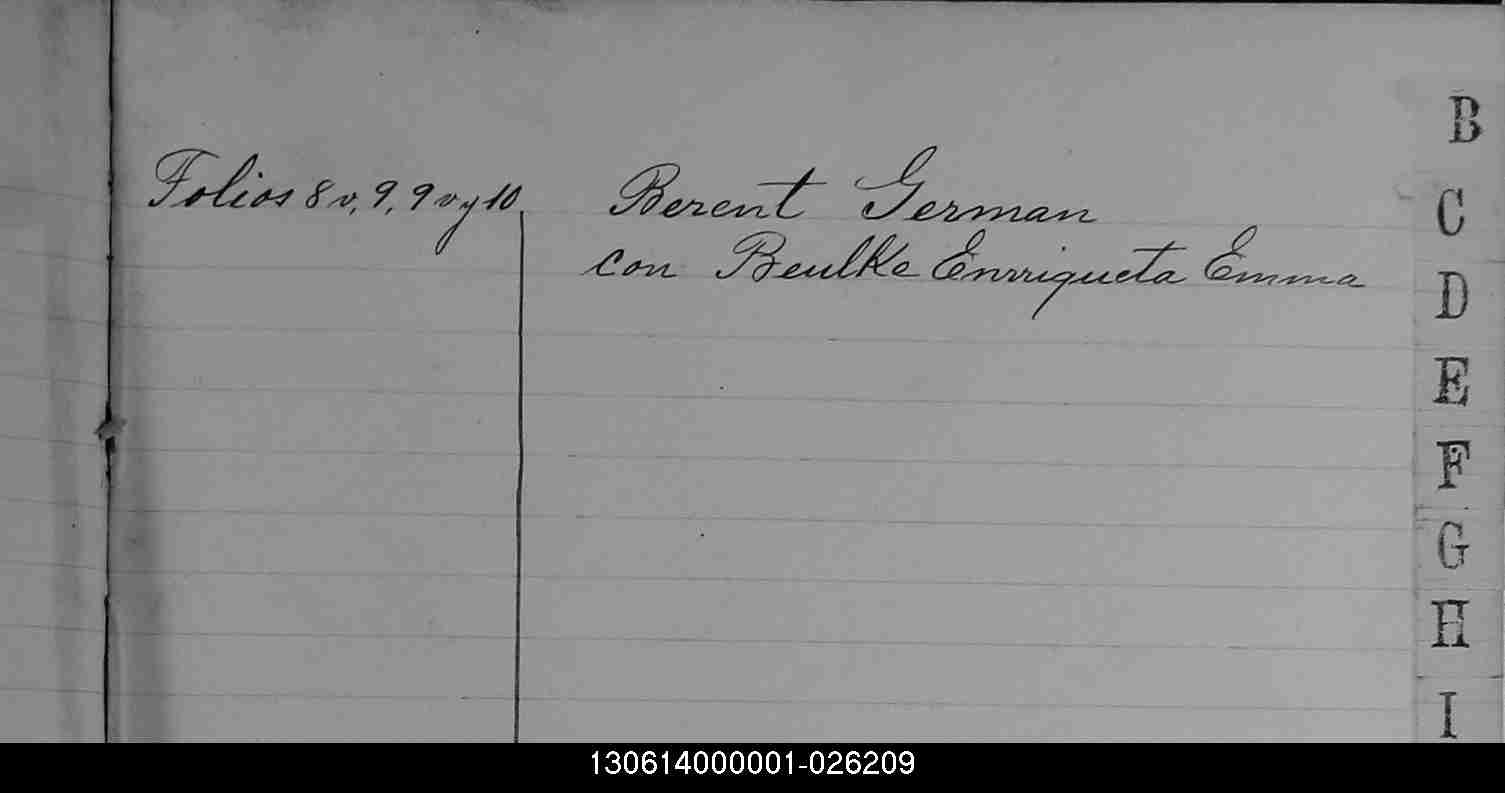 Folios 8 v, 9, 9 v y 10
Berent German
con Beulke Enrriqueta Emma
B
C
D
E
F
G
H
I
130614000001-026209